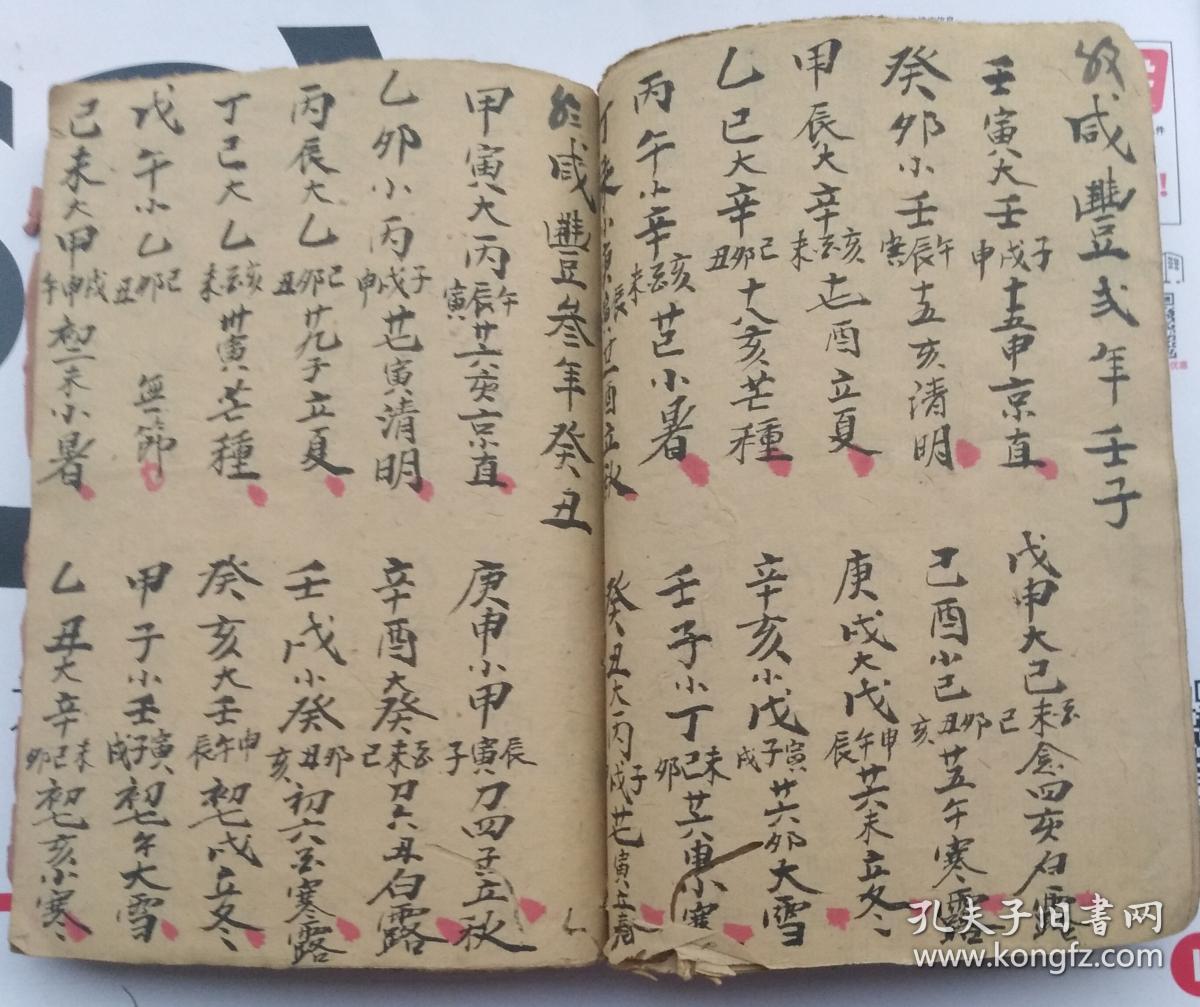 咸豐弍年壬子
壬寅大壬子戌申十五申京直
癸卯小壬午辰寅十五亥清明
甲辰大辛亥酉未十七酉立夏
乙巳大辛巳卯丑十八亥芒種
丙午小辛亥酉未廿巳小暑
丁未小庚辰廿一酉立秋
戊申大己酉未念四亥白露
己酉小己巳卯丑亥廿五午寒露
庚戌大戊申午辰廿六未立冬
辛亥小戊寅子戌廿六卯大雪
壬子小丁未巳卯廿六申小寒
癸丑大丙子戌廿七寅立春
咸豐叁年癸丑
甲寅大丙午辰寅廿六亥京直
乙卯小丙子戌申廿七寅清明
丙辰大乙巳卯丑廿九子立夏
丁巳大乙亥酉未卅寅芒種
戊午小乙巳卯丑無節
己未大甲戌申午初二未小暑
庚申小甲辰寅子刀四子立秋
辛酉大癸酉未巳刀六丑白露
壬戌小癸卯丑亥初六酉寒露
癸亥大壬申午辰初七戌立冬
甲子小壬寅子戌初七午大雪
乙丑大辛未巳卯初七亥小寒
孔夫子旧書网
www.kongfz.com